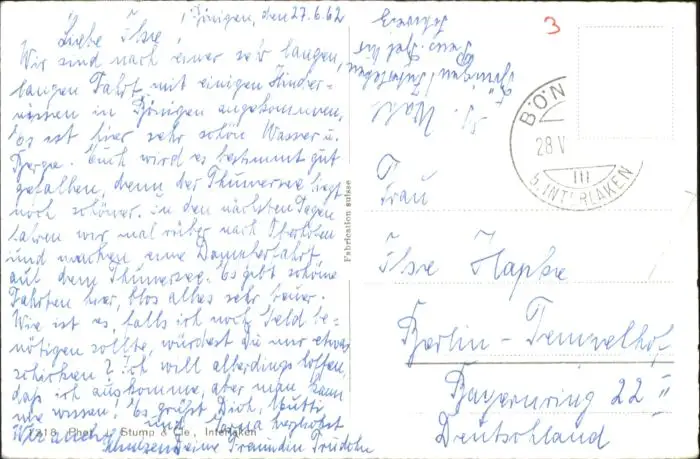 Bönigen, den 27.6.62
Liebe Ilse!
Wir sind nach einer sehr langen,
langen Fahrt mit einigen Hinder-
nissen in Bönigen angekommen.
Es ist hier sehr schön Wasser u.
Berge. Euch wird es bestimmt gut
gefallen, denn der Thunersee liegt
noch schöner. In den nächsten Tagen
fahren wir mal rüber nach
und machen eine Dampferfahrt
auf dem Thunersee. Es gibt schöne
Fahrten hier, blos alles sehr teuer.
Wie ist es, falls ich noch Geld be-
nötigen sollte, würdest Du mir etwas
schicken? Ich will allerdings hoffen,
daß ich auskomme, aber man kann
nie wissen. Es grüßt Dich, Mutti
und herzlichst
Deine Freundin Trudchen
1218 Phot. J. Stump & Cie., Interlaken
Fabrication suisse
Bönigen / Interlaken
3
BÖN
28.V
III
b. INTERLAKEN
Frau
Ilse Hapke
Berlin-Tempelhof
Bayernring 22 II
Deutschland